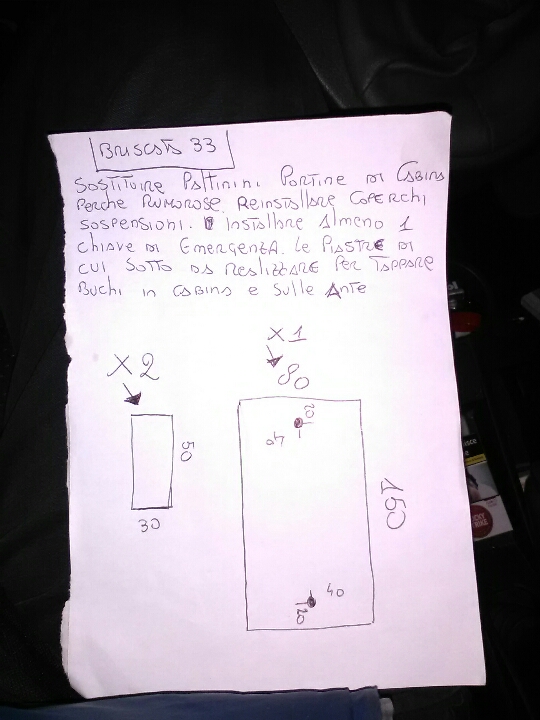 BRUSCATA 33
SOSTITUIRE PATTININI PORTINE DI CABINA
PERCHE RUMOROSE. REINSTALLARE COPERCHI
SOSPENSIONI. INSTALLARE ALMENO 1
CHIAVE DI EMERGENZA. LE PIASTRE DI
CUI SOTTO DA REALIZZARE PER TAPPARE
BUCHI IN CABINA E SULLE ANTE
X1
X2
80
20
40
50
150
30
40
20